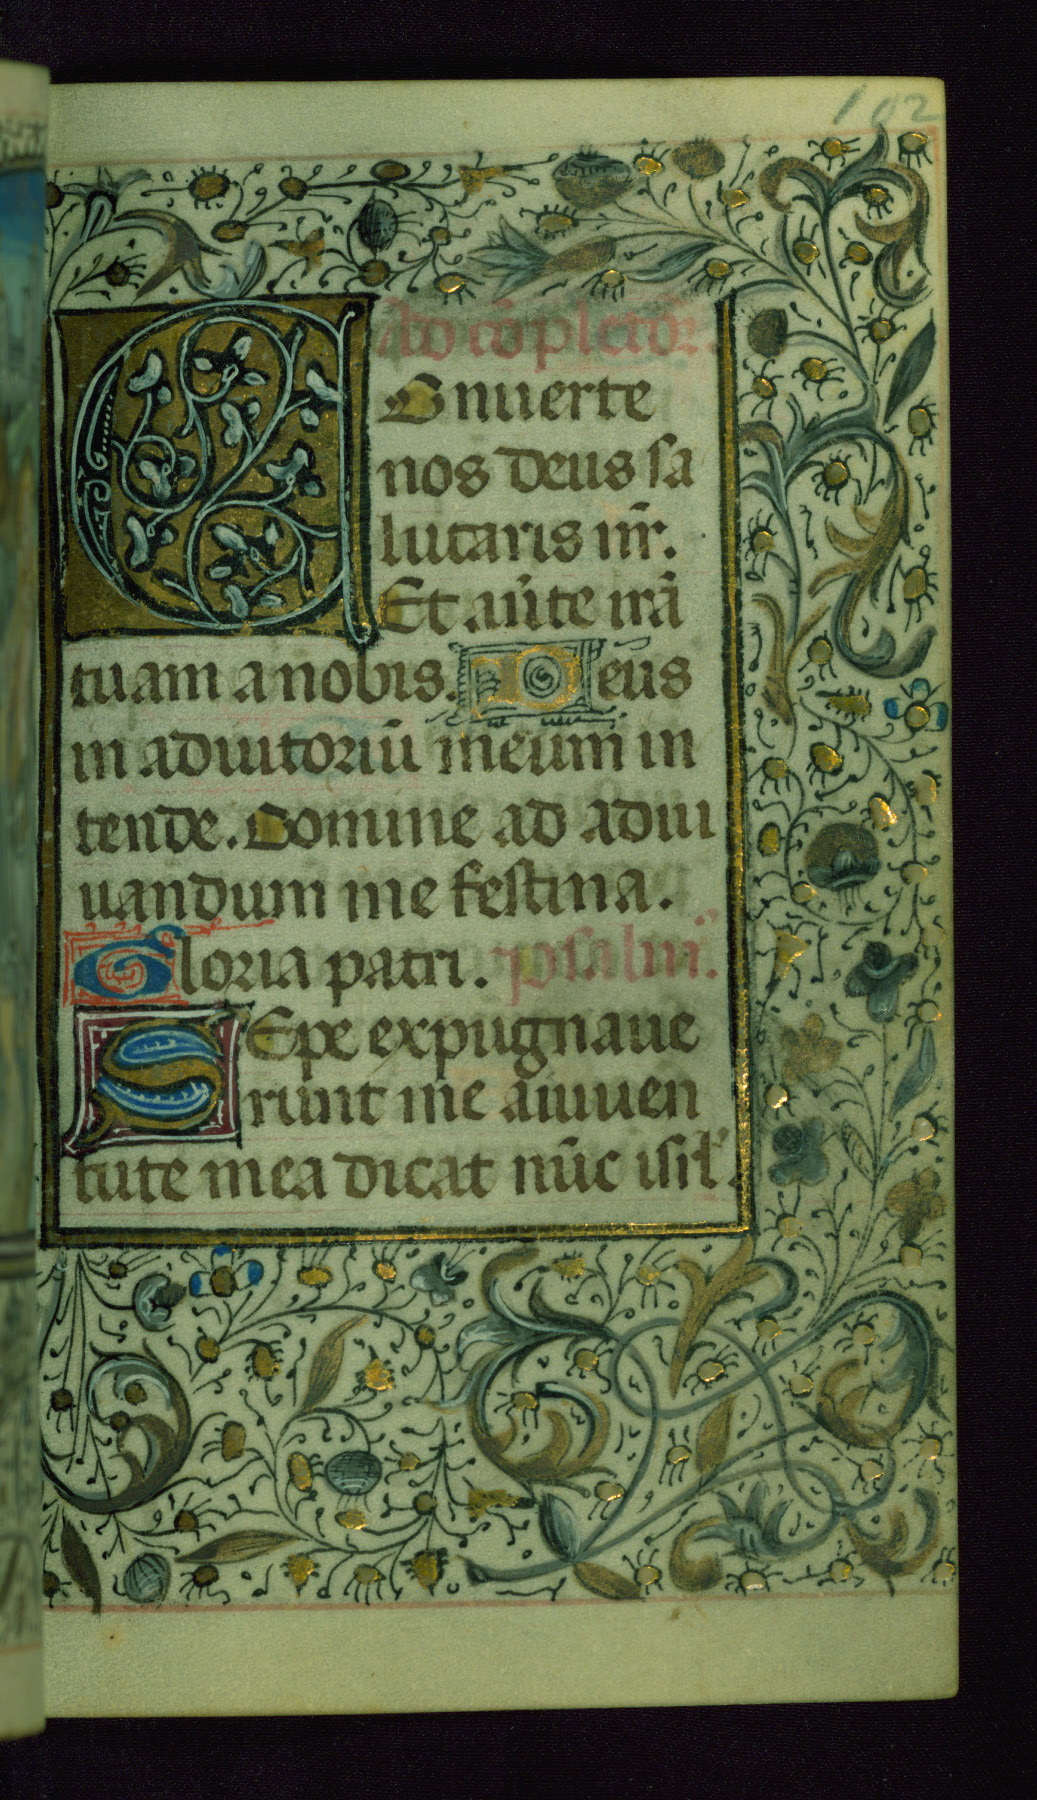 102
Ad cōpletor̄.
COnuerte
nos deus sa
lutaris nr̄.
Et au̇te irā
tuam a nobis. Deus
in adiutoriū meum in
tende. Domine ad adiu
uandum me festina.
Gloria patri. psalm̄.
SEpe expugnaue
runt me a iuuen
tute mea dicat nūc isrl̄.